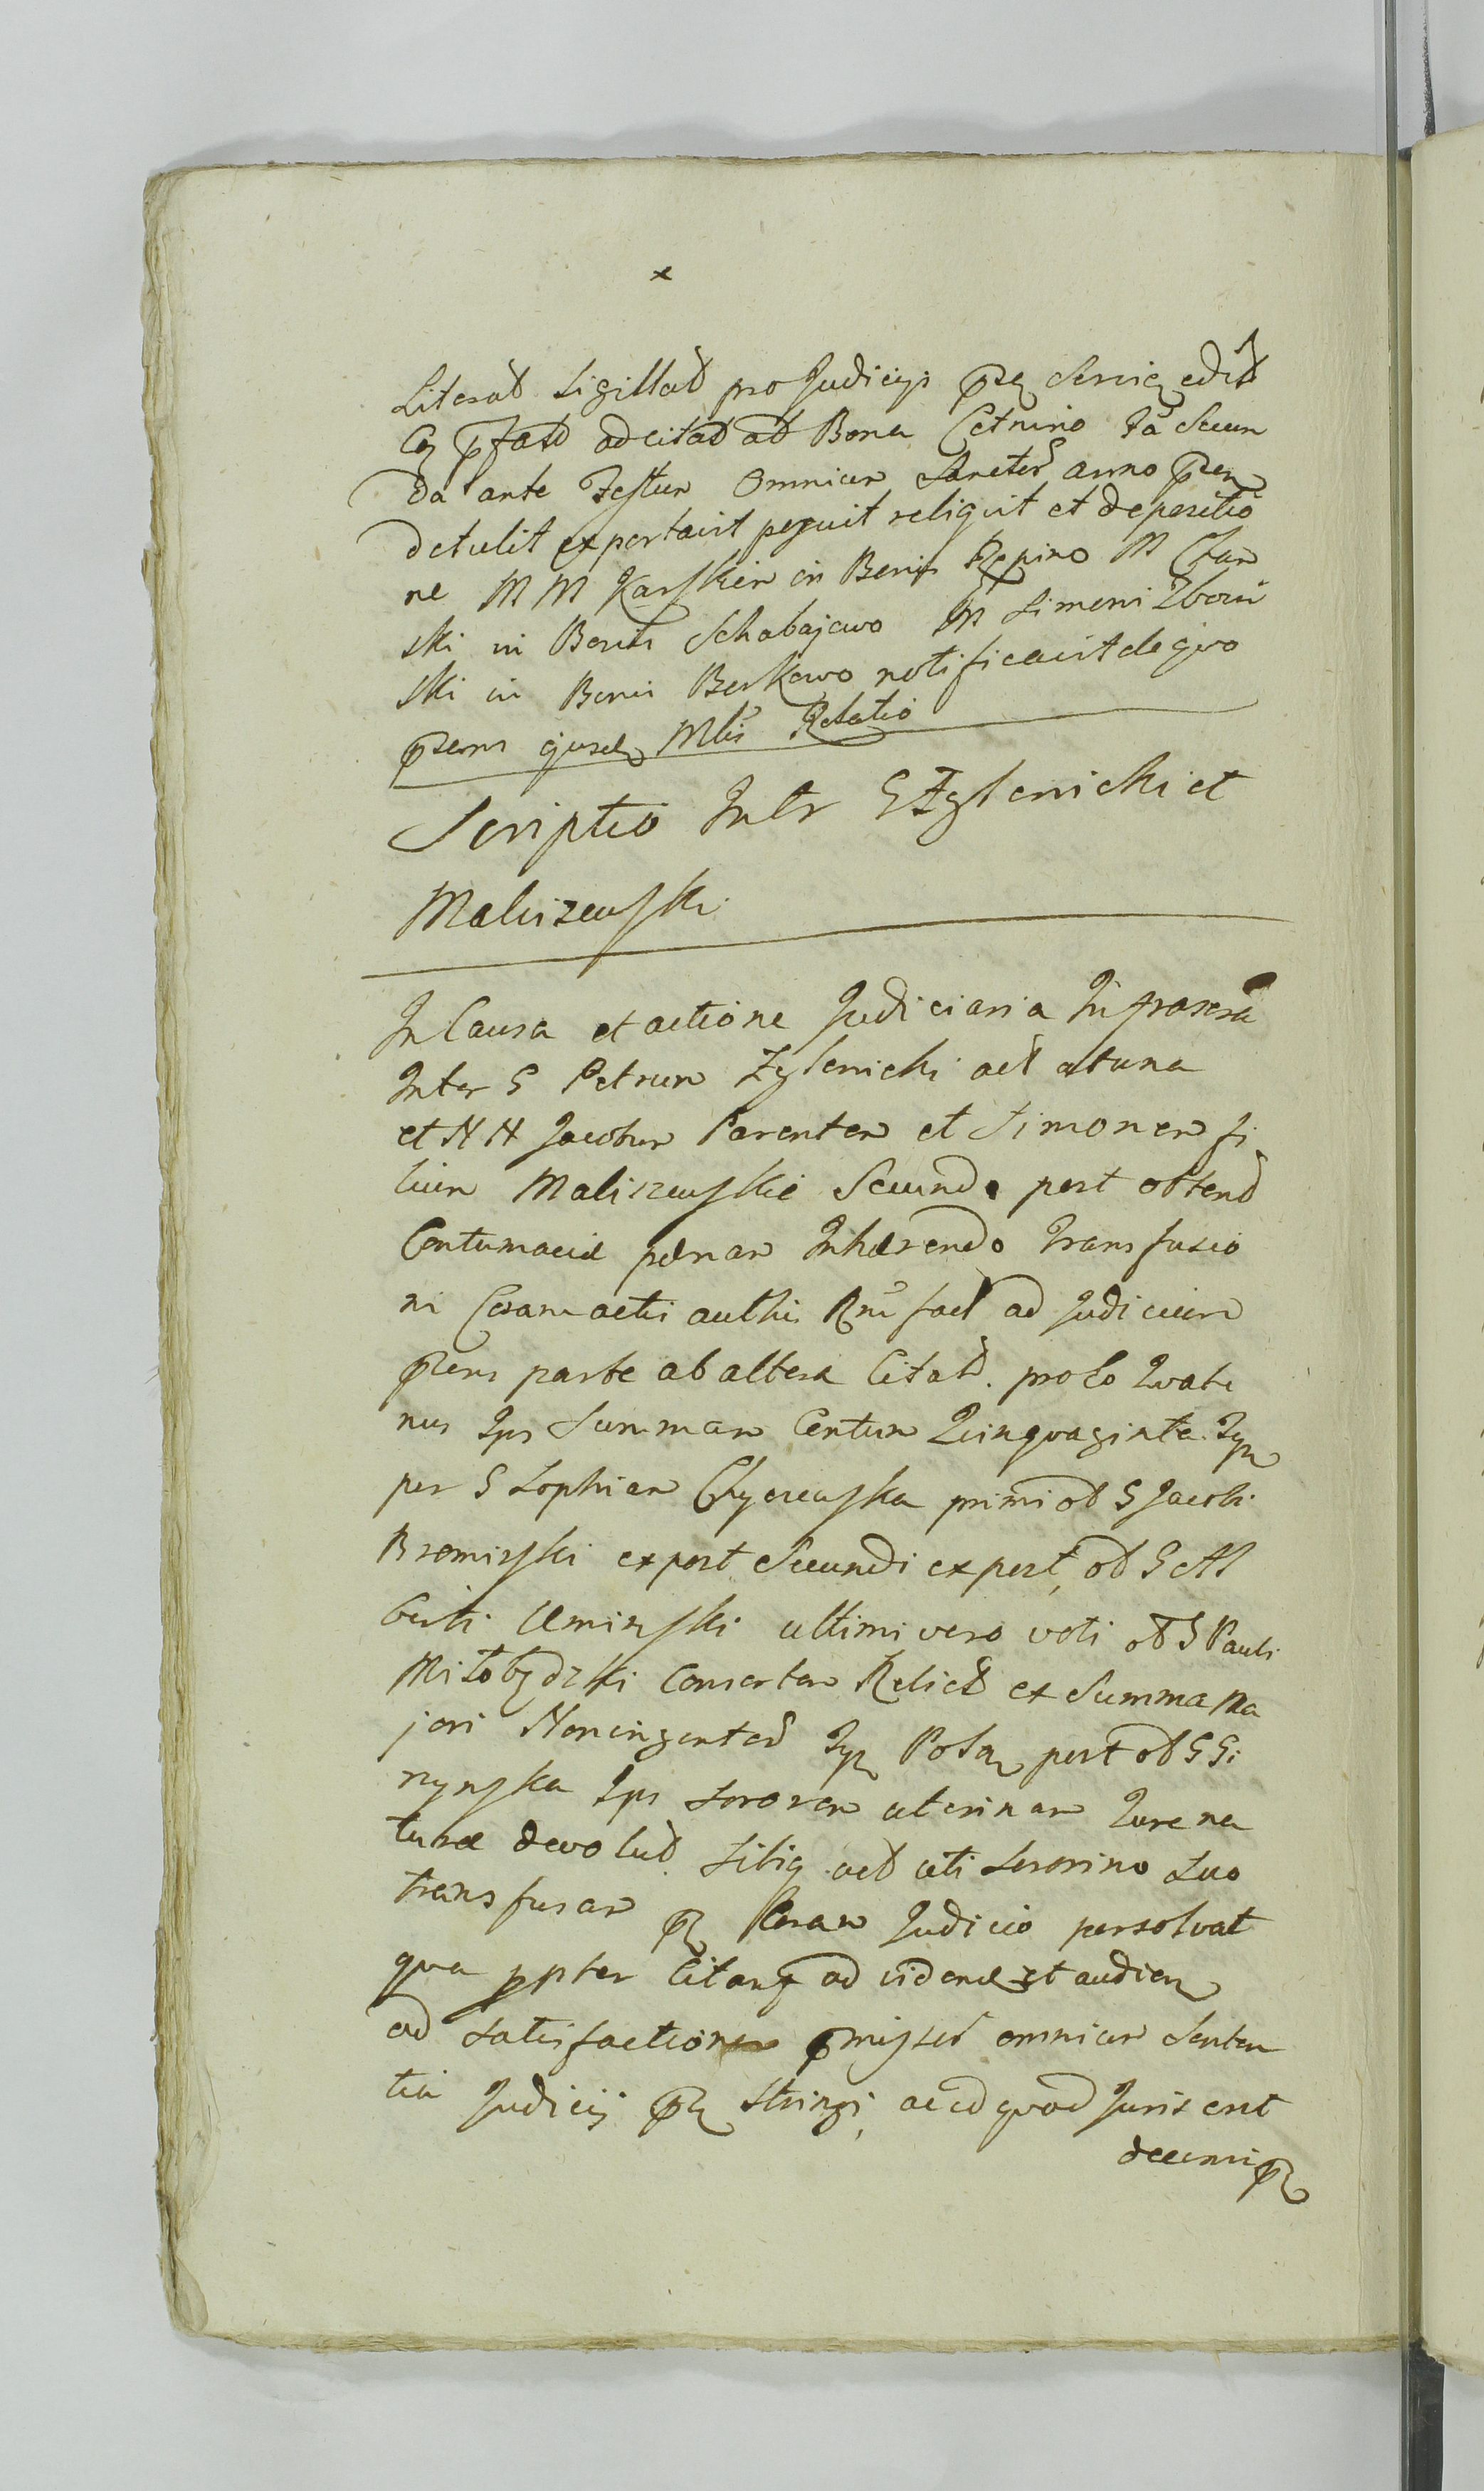 x
Literat Sigillat pro Judicijs edit
ad citat ad Bona Cetnino Fa Secun
da ante Festum Omnium Sanctor anno
detulit exportavit posuit reliquit et depositio
ne M M Karskim in Bonis Rzepino M
ski in Bonis Schabajewo M Simoni Zboin
ski in Bonis Borkowo notificavit de quo
ejusd Mlis Relatio
Scriptio Intr G Zglenicki et
Maliszewski
In Causa et actione Judiciaria Infrascr
Inter G Petrum Zglenicki act ab una
et N N Jacobum Parentem et Simonem fi
lium Maliszewskie Secund post obtent
Contumacia penam Inhærendo Transfusio
ni Coram actis authis fact ad Judicium
parte ab altera Citat. pro eo Quate
nus Ips Summam Centum Quinquaginta
per G Zophiam primi ol G Jacobi
Bromirski expost Secundi expost ol G Al
berti Uminski ultimi vero voti ol G Pauli
Miłobędzki Consortem Relict ex Summa Ma
jori Noningentor Polon post ol G Gi
zynska Ips Sororem uterinam Jure na
turæ devolut Sibiq act uti Sororino Suo
transfusam Coram Judicio persolvat
qua ppter Citantur ad vidend et audien
ad satisfactionem omnium Senten
tia Judicij Stringi, ac id quod Juris erit
decerni